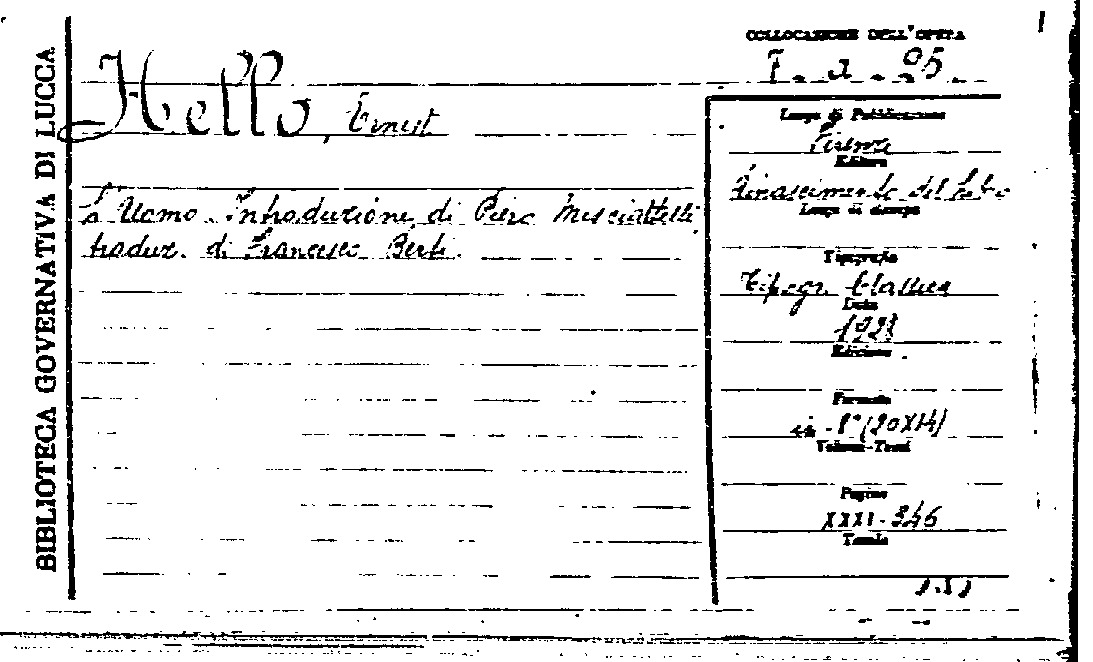 BIBLIOTECA GOVERNATIVA DI LUCCA
COLLOCAZIONE DELL'OPERA
F. a. 95.
Hello, Ernest
L'Uomo. Introduzione di Piero Misciattelli
traduz. di Francesco Berti.
Luogo di Pubblicazione
Firenze
Editore
Rinascimento del Libro
Luogo di stampa
Tipografia
Tipogr. Classica
Data
1928
Edizione
Formato
in-8° (20X14)
Volumi-Tomi
Pagine
XXXI-346
Tavole